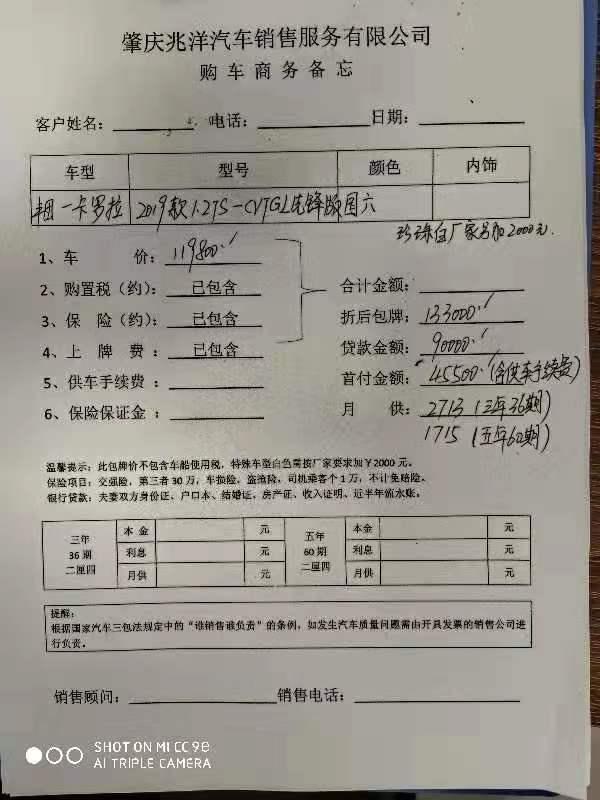 肇庆兆洋汽车销售服务有限公司
购车商务备忘
客户姓名： 电话： 日期：
车型 型号 颜色 内饰
丰田一卡罗拉 2019款1.2TS-CVTGL先锋版国六
珍珠白厂家另加2000元.
1、车 价：119800.
2、购置税（约）：已包含
3、保 险（约）：已包含
4、上 牌 费 ：已包含
5、供车手续费 ：
6、保险保证金 ：
合计金额：
折后包牌：133000.
贷款金额：90000.
首付金额：45500.（含供车手续费）
月 供：2713（三年36期）
1715（五年60期）
温馨提示：此包牌价不包含车船使用税，特殊车型白色需按厂家要求加￥2000元。
保险项目：交强险，第三者30万，车损险，盗抢险，司机乘客个1万，不计免赔险。
银行贷款：夫妻双方身份证、户口本、结婚证、房产证、收入证明、近半年流水账。
三年
36期
二厘四
本金 元
利息 元
月供 元
五年
60期
二厘四
本金 元
利息 元
月供 元
提醒：
根据国家汽车三包法规定中的“谁销售谁负责”的条例，如发生汽车质量问题需由开具发票的销售公司进
行负责。
销售顾问： 销售电话：
SHOT ON MI CC 9e
AI TRIPLE CAMERA